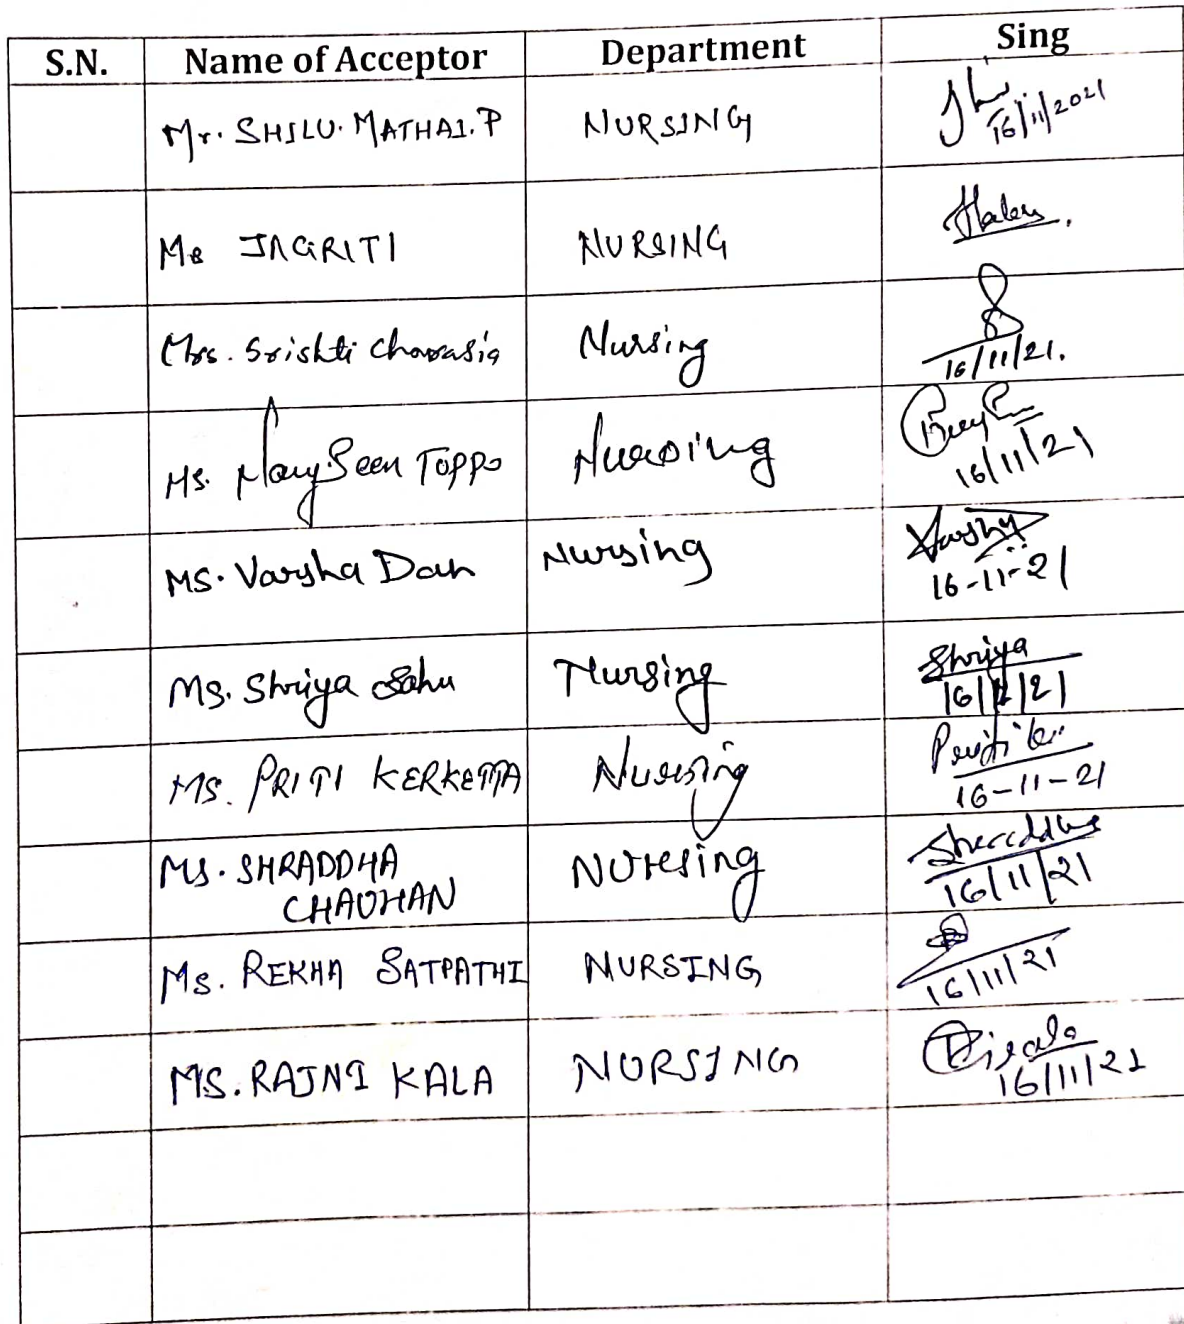 S.N. Name of Acceptor Department Sing
Mr. SHILU. MATHAI. P NURSING 16/11/2021
Ms JAGRITI NURSING
Mrs. Srishti Chorasia Nursing 16/11/21.
Ms. Mary Seen Toppo Nursing 16/11/21
MS. Varsha Dan Nursing Varsha
16-11-21
Ms. Shriya Sahu Nursing Shriya
16/11/21
MS. PRITI KERKETTA Nursing
16-11-21
Ms. SHRADDHA NUrsing Shraddha
CHAUHAN 16/11/21
Ms. REKHA SATPATHI NURSING 16/11/21
MS. RAJNI KALA NURSING
16/11/21